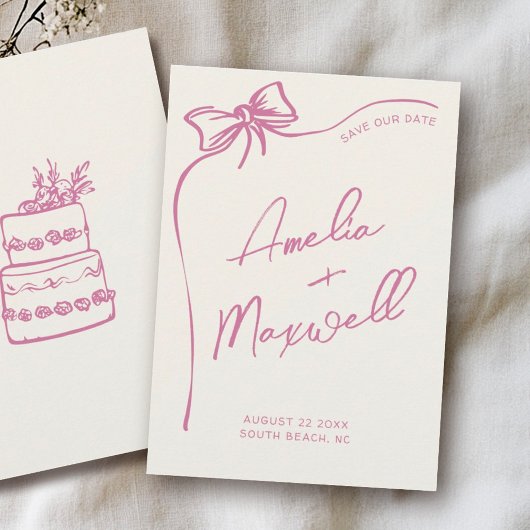 SAVE OUR DATE
Amelia
+
Maxwell
AUGUST 22 20XX
SOUTH BEACH, NC